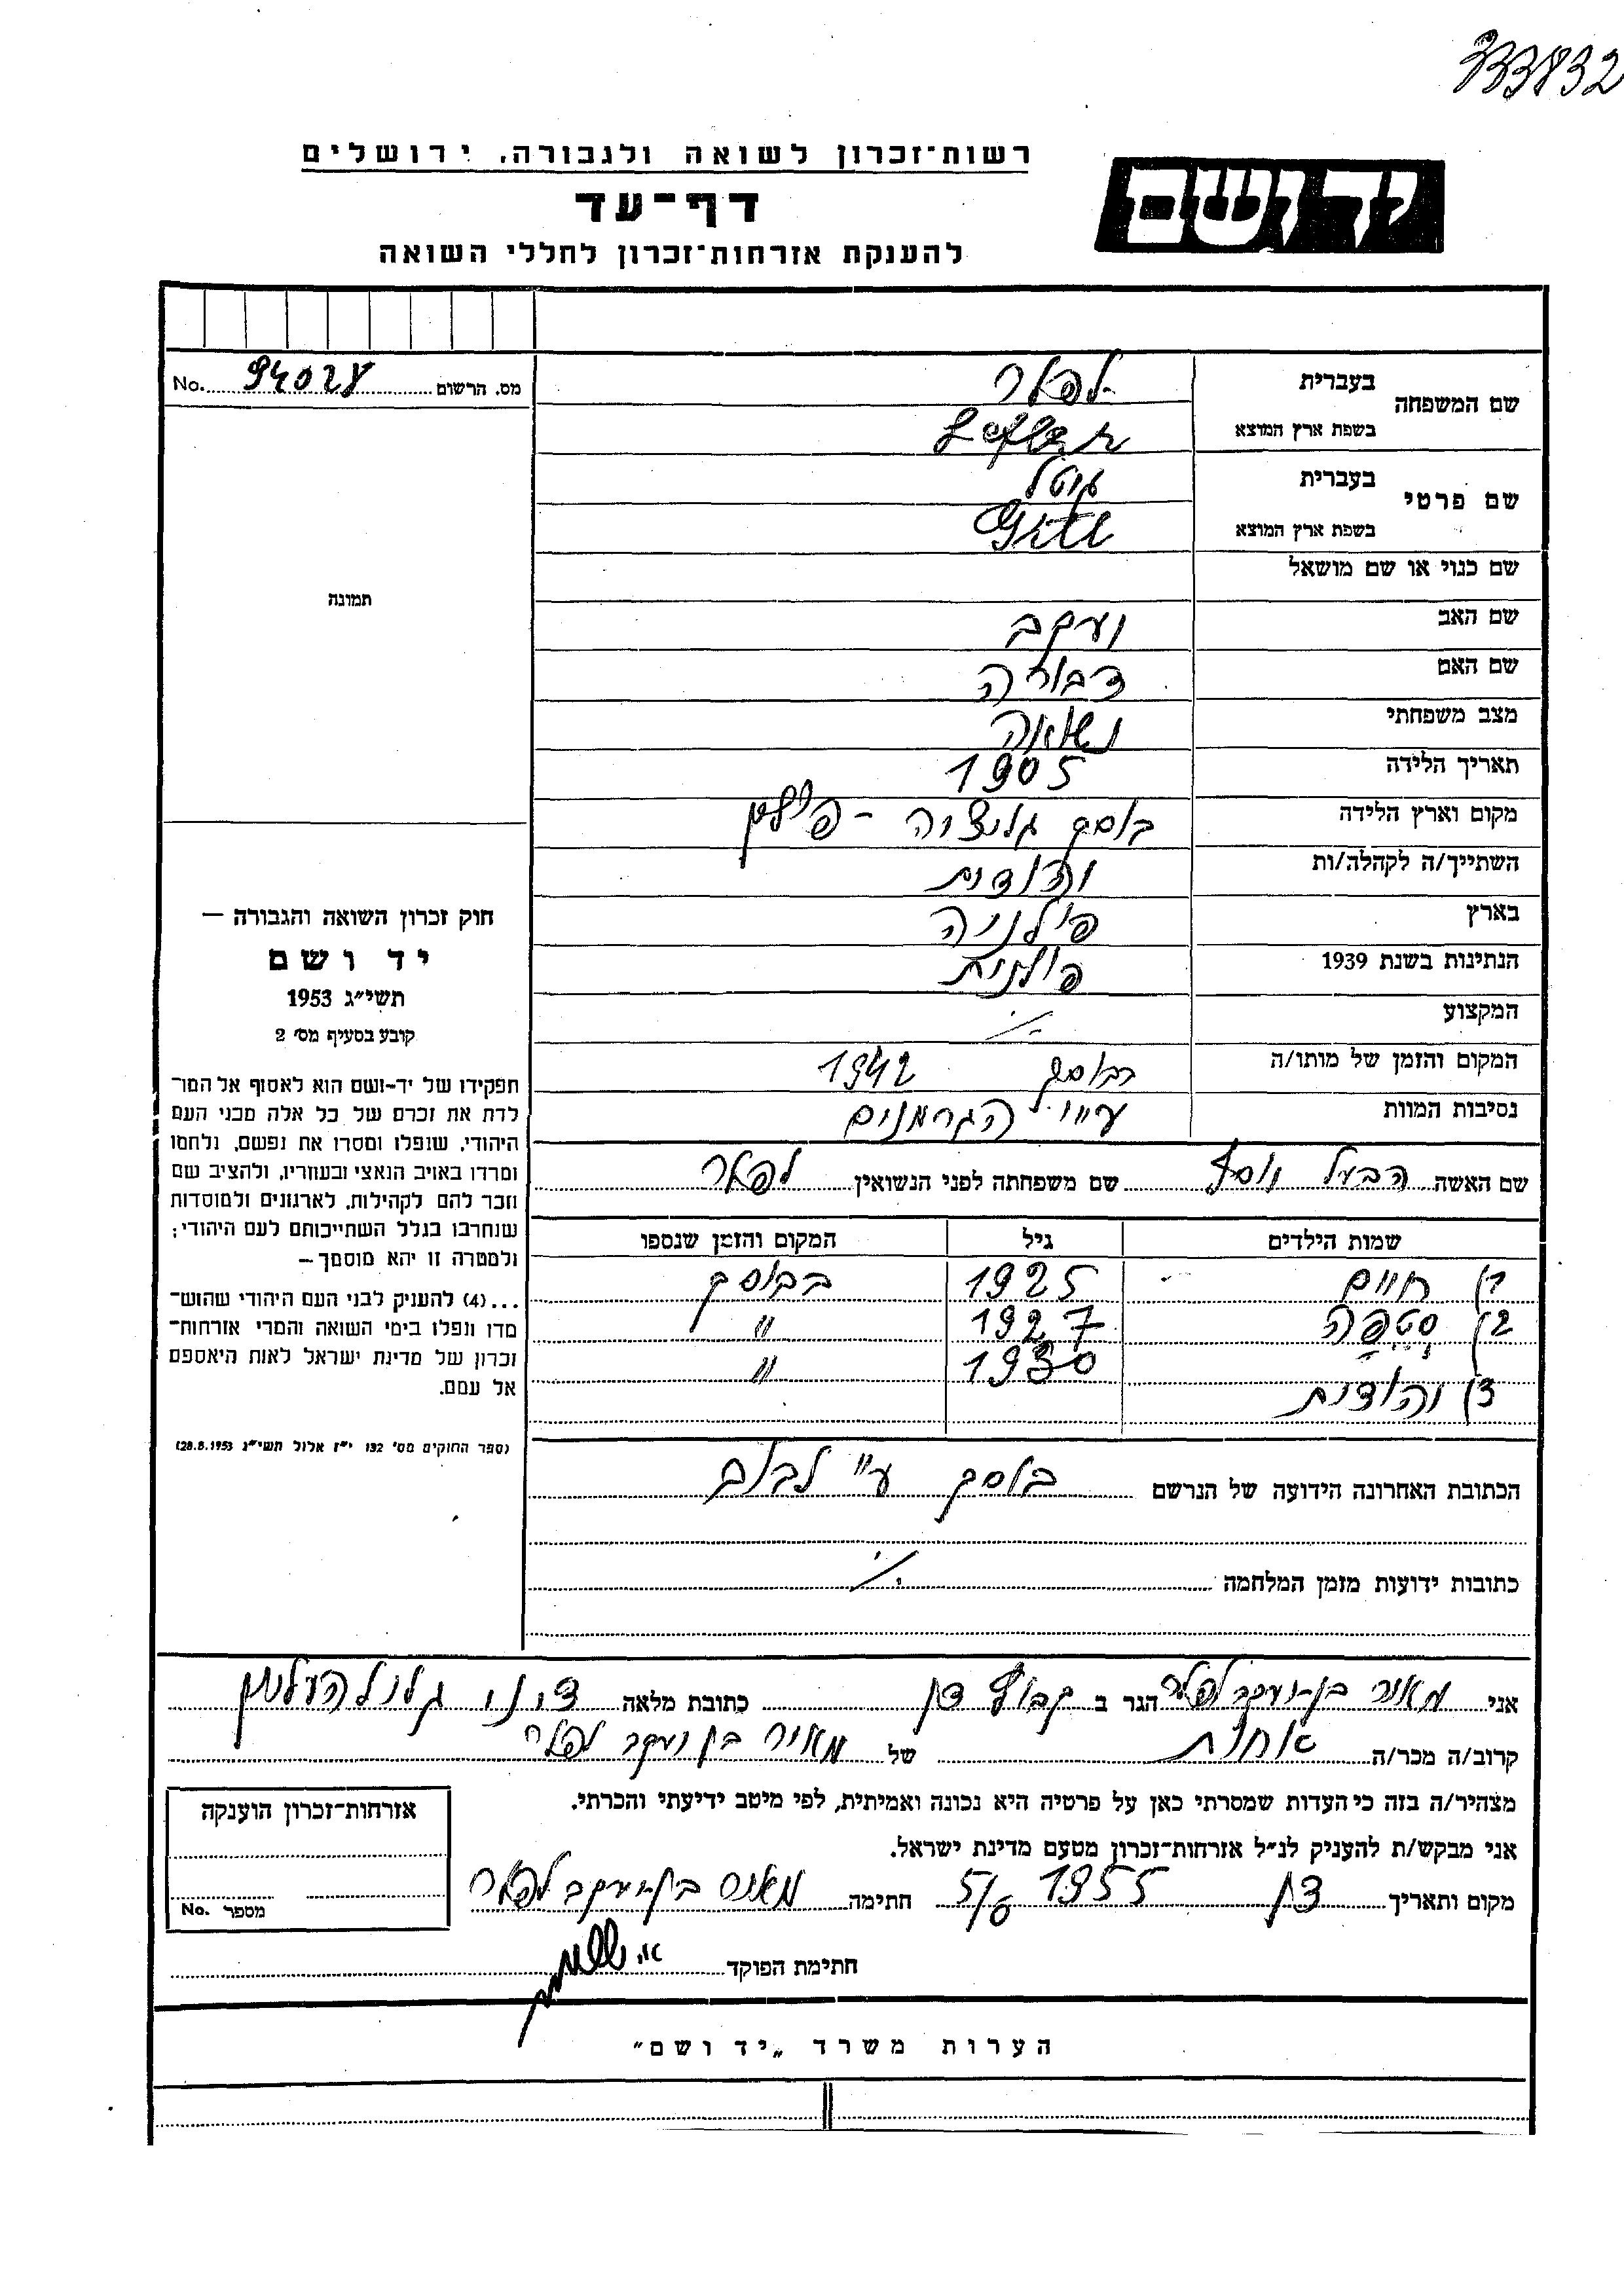 333832
רשות־זכרון לשואה ולגבורה, ירושלים
יד ושם
דף־עד
להענקת אזרחות־זכרון לחללי השואה
מס. הרשום 94028 No.
שם המשפחה
בעברית לפלר
בשפת ארץ המוצא Lefler
שם פרטי
בעברית גיטל
בשפת ארץ המוצא Gittl
שם כנוי או שם מושאל
שם האב יעקב
שם האם דבורה
מצב משפחתי נשואה
תאריך הלידה 1905
מקום וארץ הלידה בוסק גליציה - פולין
השתייך/ה לקהלה/ות יהודית
בארץ פולניה
הנתינות בשנת 1939 פולנית
המקצוע ./.
המקום והזמן של מותו/ה בבוסק 1942
נסיבות המוות ע"י הגרמנים
שם האשה הבעל יוסף שם משפחתה לפני הנשואין לפלר
שמות הילדים גיל המקום והזמן שנספו
1) חיים 1925 בבוסק
2) סטפה 1927 "
1930 "
3) יהודית
הכתובת האחרונה הידועה של הנרשם בוסק ע"י לבוב
כתובות ידועות מזמן המלחמה ./.
תמונה
חוק זכרון השואה והגבורה —
יד ושם
תשי״ג 1953
קובע בסעיף מס׳ 2
תפקידו של יד־ושם הוא לאסוף אל המו־
לדת את זכרם של כל אלה מבני העם
היהודי, שנפלו ומסרו את נפשם, נלחמו
ומרדו באויב הנאצי ובעוזריו, ולהציב שם
וזכר להם לקהילות, לארגונים ולמוסדות
שנחרבו בגלל השתייכותם לעם היהודי;
ולמטרה זו יהא מוסמך —
...(4) להעניק לבני העם היהודי שהוש־
מדו ונפלו בימי השואה והמרי אזרחות־
זכרון של מדינת ישראל לאות היאספם
אל עמם.
(ספר החוקים מס׳ 132 י״ז אלול תשי״ג 28.8.1953)
אני מאיר בן-יעקב לפלר הגר ב קבוץ דן כתובת מלאה ד.נ. גליל העליון
קרוב/ה מכר/ה אחות של מאיר בן יעקב לפלר
מצהיר/ה בזה כי העדות שמסרתי כאן על פרטיה היא נכונה ואמיתית, לפי מיטב ידיעתי והכרתי.
אני מבקש/ת להעניק לנ״ל אזרחות־זכרון מטעם מדינת ישראל.
מקום ותאריך דן 5/6 1955 חתימה מאיר בן-יעקב לפלר
חתימת הפוקד
אזרחות־זכרון הוענקה
מספר No.
הערות משרד „יד ושם״